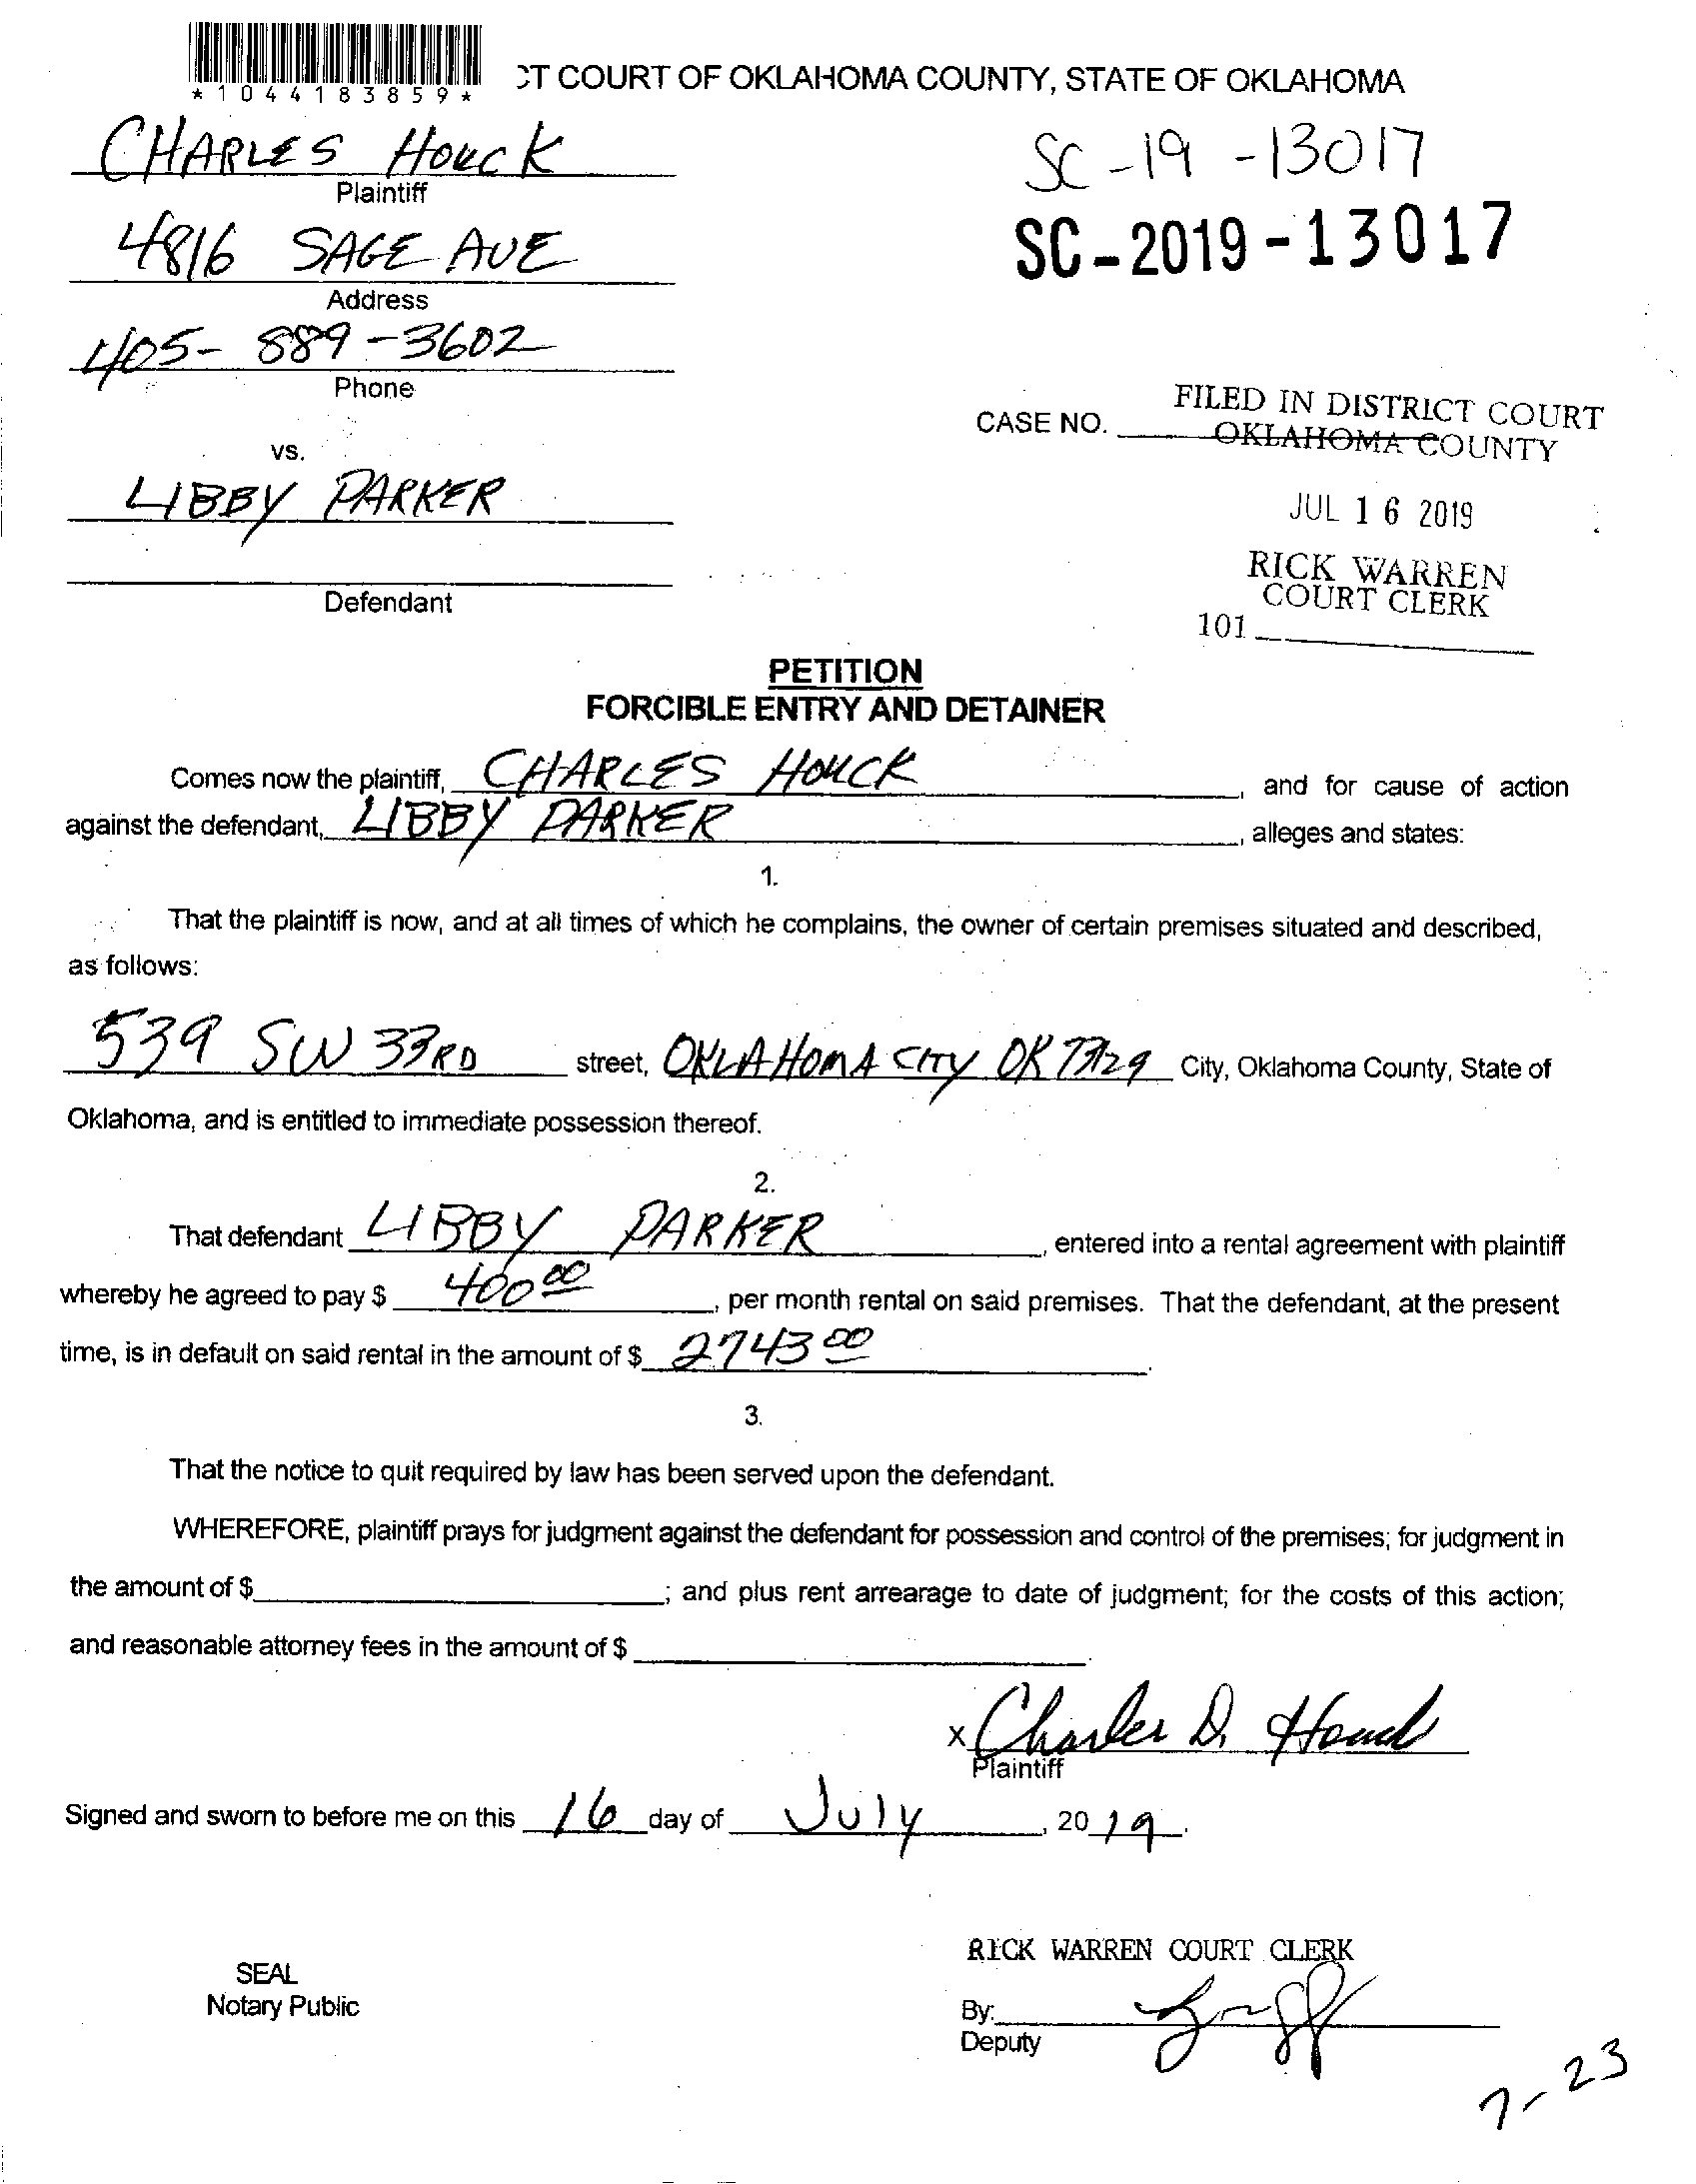 *1044183859*
CT COURT OF OKLAHOMA COUNTY, STATE OF OKLAHOMA
CHARLES HOUCK
Plaintiff
SC-19-13017
4816 SAGE AVE
Address
SC-2019-13017
405-889-3602
Phone
CASE NO.
FILED IN DISTRICT COURT
OKLAHOMA COUNTY
vs.
LIBBY PARKER
JUL 16 2019
RICK WARREN
COURT CLERK
Defendant
101
PETITION
FORCIBLE ENTRY AND DETAINER
Comes now the plaintiff, CHARLES HOUCK, and for cause of action
against the defendant, LIBBY PARKER, alleges and states:
1.
That the plaintiff is now, and at all times of which he complains, the owner of certain premises situated and described,
as follows:
539 SW 33RD street, OKLAHOMA CITY OK 73129 City, Oklahoma County, State of
Oklahoma, and is entitled to immediate possession thereof.
2.
That defendant LIBBY PARKER, entered into a rental agreement with plaintiff
whereby he agreed to pay $ 400 00, per month rental on said premises. That the defendant, at the present
time, is in default on said rental in the amount of $ 2743 00.
3.
That the notice to quit required by law has been served upon the defendant.
WHEREFORE, plaintiff prays for judgment against the defendant for possession and control of the premises; for judgment in
the amount of $ ; and plus rent arrearage to date of judgment; for the costs of this action;
and reasonable attorney fees in the amount of $ .
x Charles D. Houck
Plaintiff
Signed and sworn to before me on this 16 day of July, 2019.
RICK WARREN COURT CLERK
SEAL
Notary Public
By:
Deputy
7-23